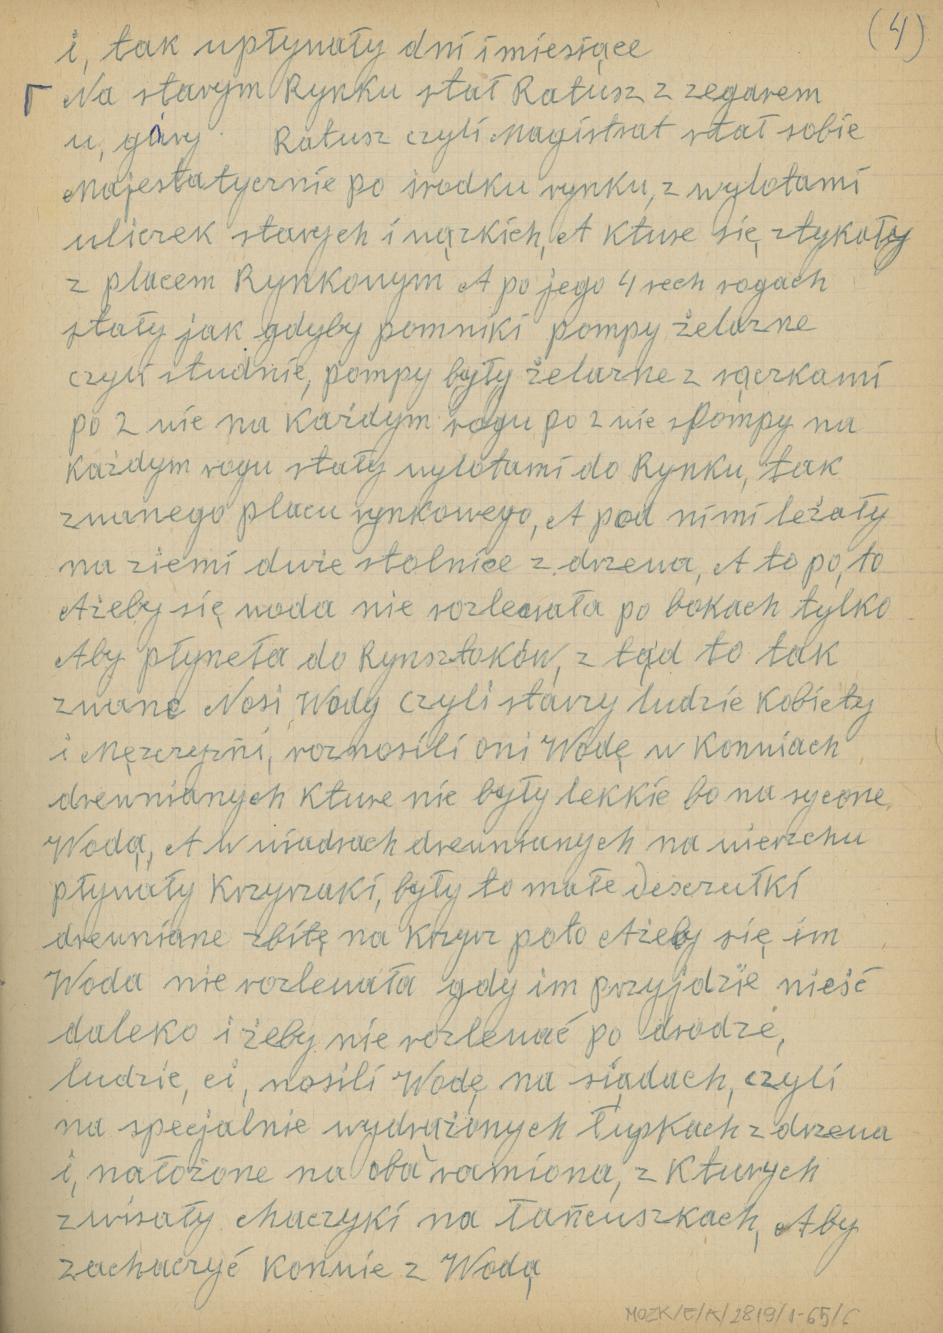 (4)
i, tak upłynały dni i miesiące
Na starym Rynku stał Ratusz z zegarem
u, góry Ratusz czyli Magistrat stał sobie
Majestatycznie po środku rynku, z wylotami
uliczek starych i wązkich, A kture się ztykały
z placem Rynkowym A po jego 4 rech rogach
stały jak gdyby pomniki pompy želazne
czyli studnie, pompy były želazne z rączkami
po 2 wie na Każdym rogu po 2 wie Pompy na
Każdym rogu stały wylotami do Rynku, tak
zwanego placu rynkowego, A pod nimi leżały
na ziemi duże stolnice z drzewa, A to po, to
Ażeby się woda nie rozlewała po bokach tylko
Aby płyneła do Rynsztoków, z tąd to tak
zwane Nosi Wody czyli starzy ludzie Kobiety
i Męzczyzńi, roznosili oni Wodę w Konwiach
drewnianych Kture nie były lekkie bo na sycone
Wodą, A W wiadrach drewnianych na wierzchu
pływały Krzyzaki, były to małe Deszczułki
drewniane zbitę na Krzyrz poto Ażeby się im
Woda nie rozlewała gdy im przyjdzie nieść
daleko i żeby nie rozlewać po drodze,
ludzie, ci, nosili Wodę na siądach, czyli
na specjalnie wydrążonych łupkach z drzewa
i, nałożone na oba ramiona, z Kturych
zwisały chaczyki na łańcuszkach, Aby
zachaczyć Konwie z Wodą
MOZK/E/A/2819/1-65/6